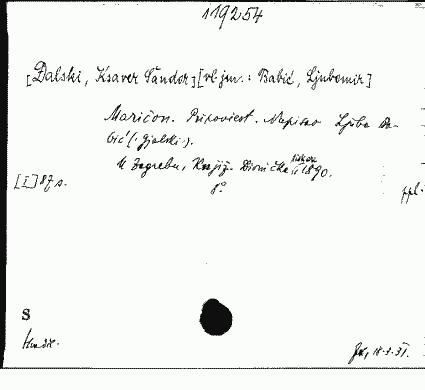 119254
[Đalski, Ksaver Šandor] [vl. jm.: Babić, Ljubomir]
Maričon. Pripoviest. Napisao Ljuba Ba-
bić (: Gjalski :).
U Zagrebu, Knjiž. Dionička tiskara 1890.
[I] 87 s. 8° ppl.
S